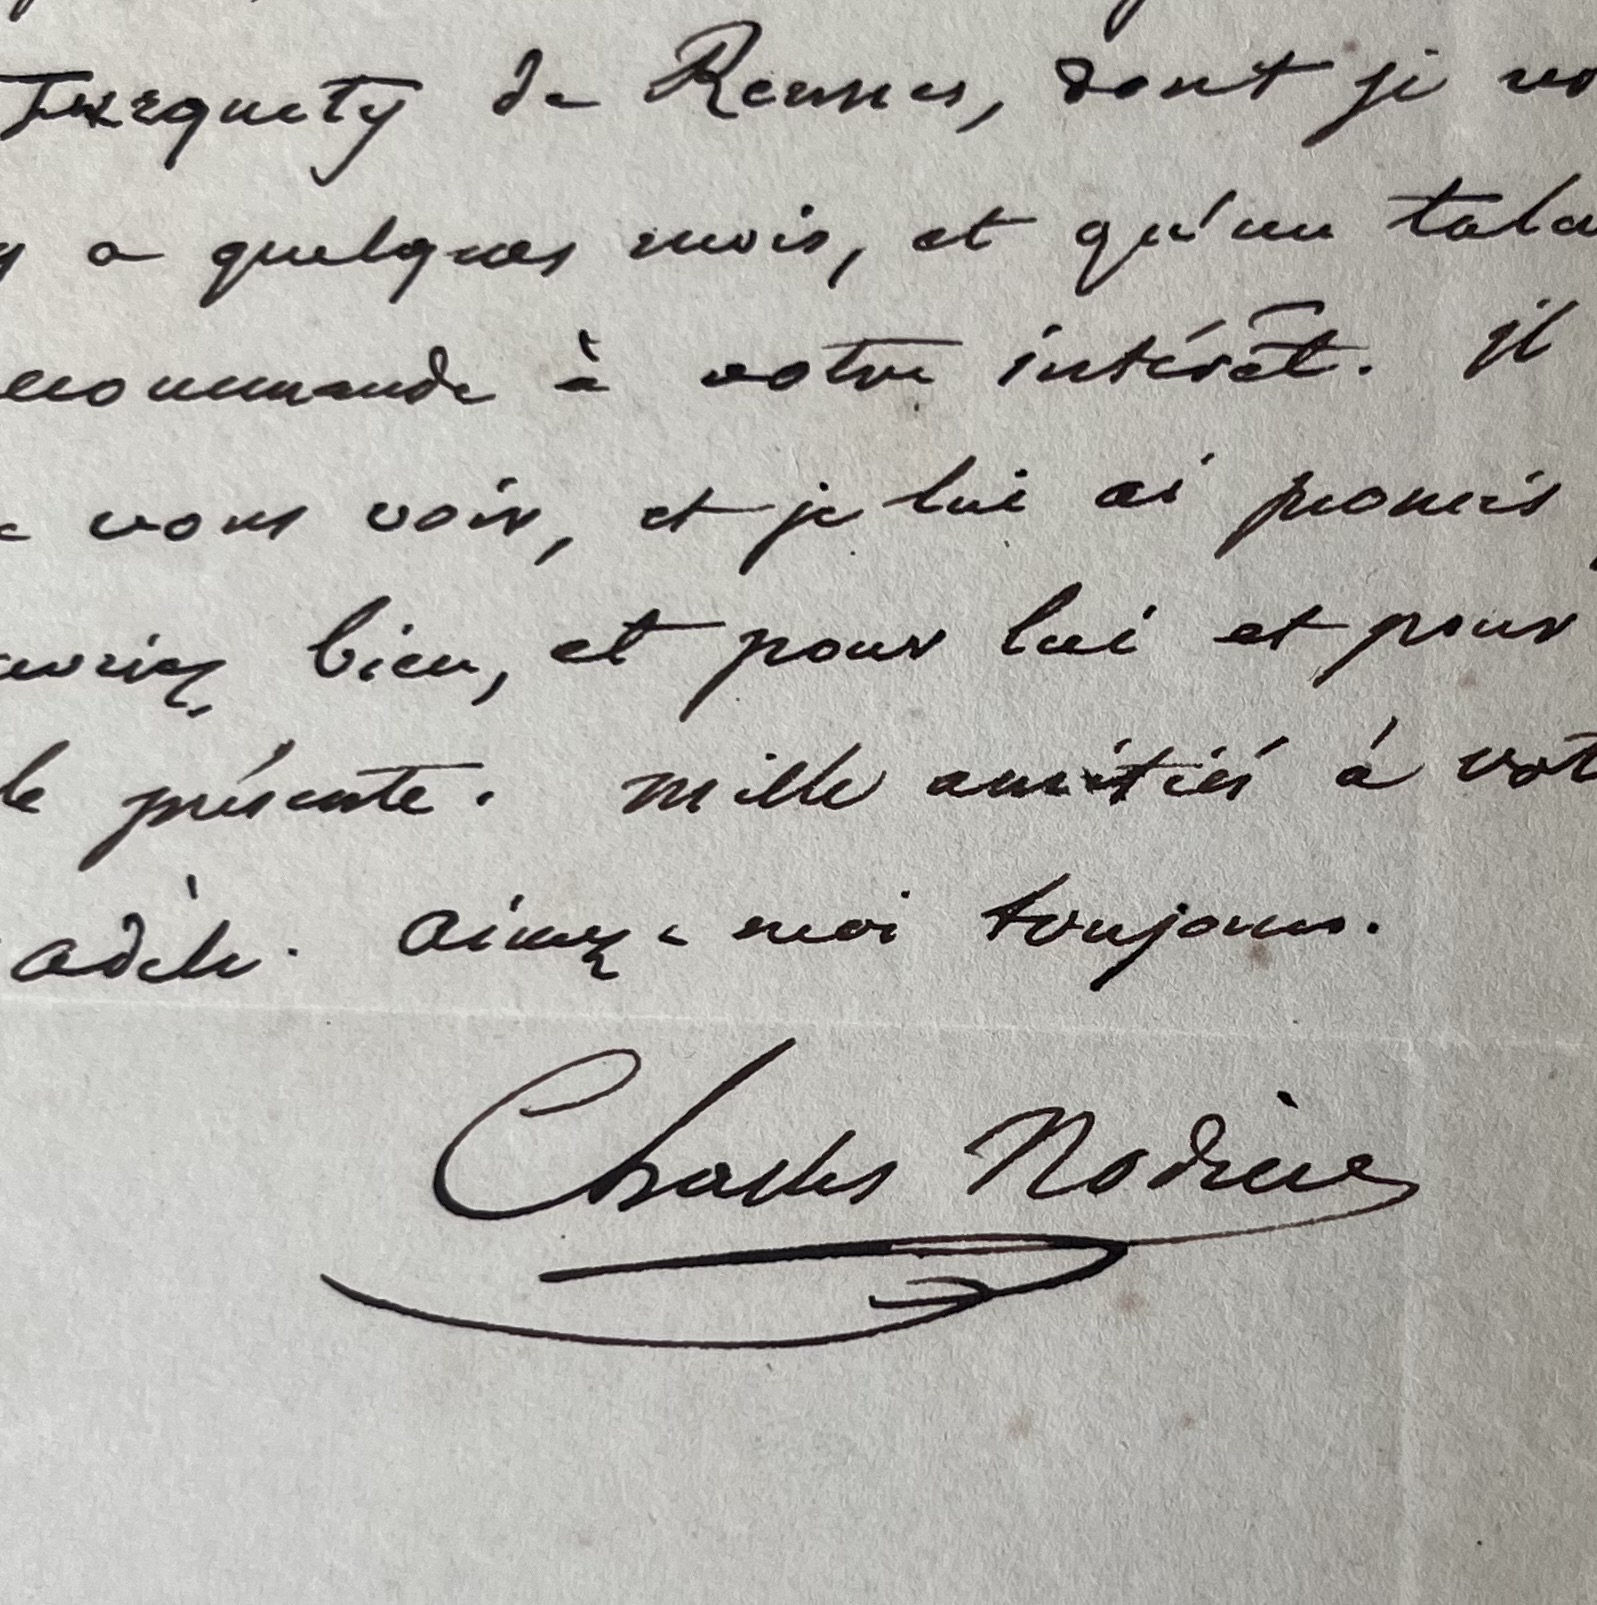 Turquety de Rennes, dont je vo
y a quelques mois, et qu'un tale
commande à votre intérêt. il
vous voir, et je lui ai promis
bien, et pour lui et pour
le présente. mille amitiés à vot
adèle. aimez-moi toujours.
Charles Nodier